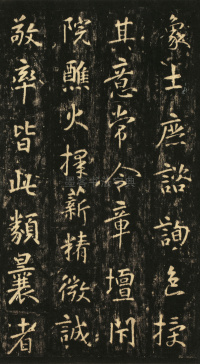 士庶諮詢色授
其意常令章壇閉
院醮火擇薪精微誠
敬率皆此類曩者